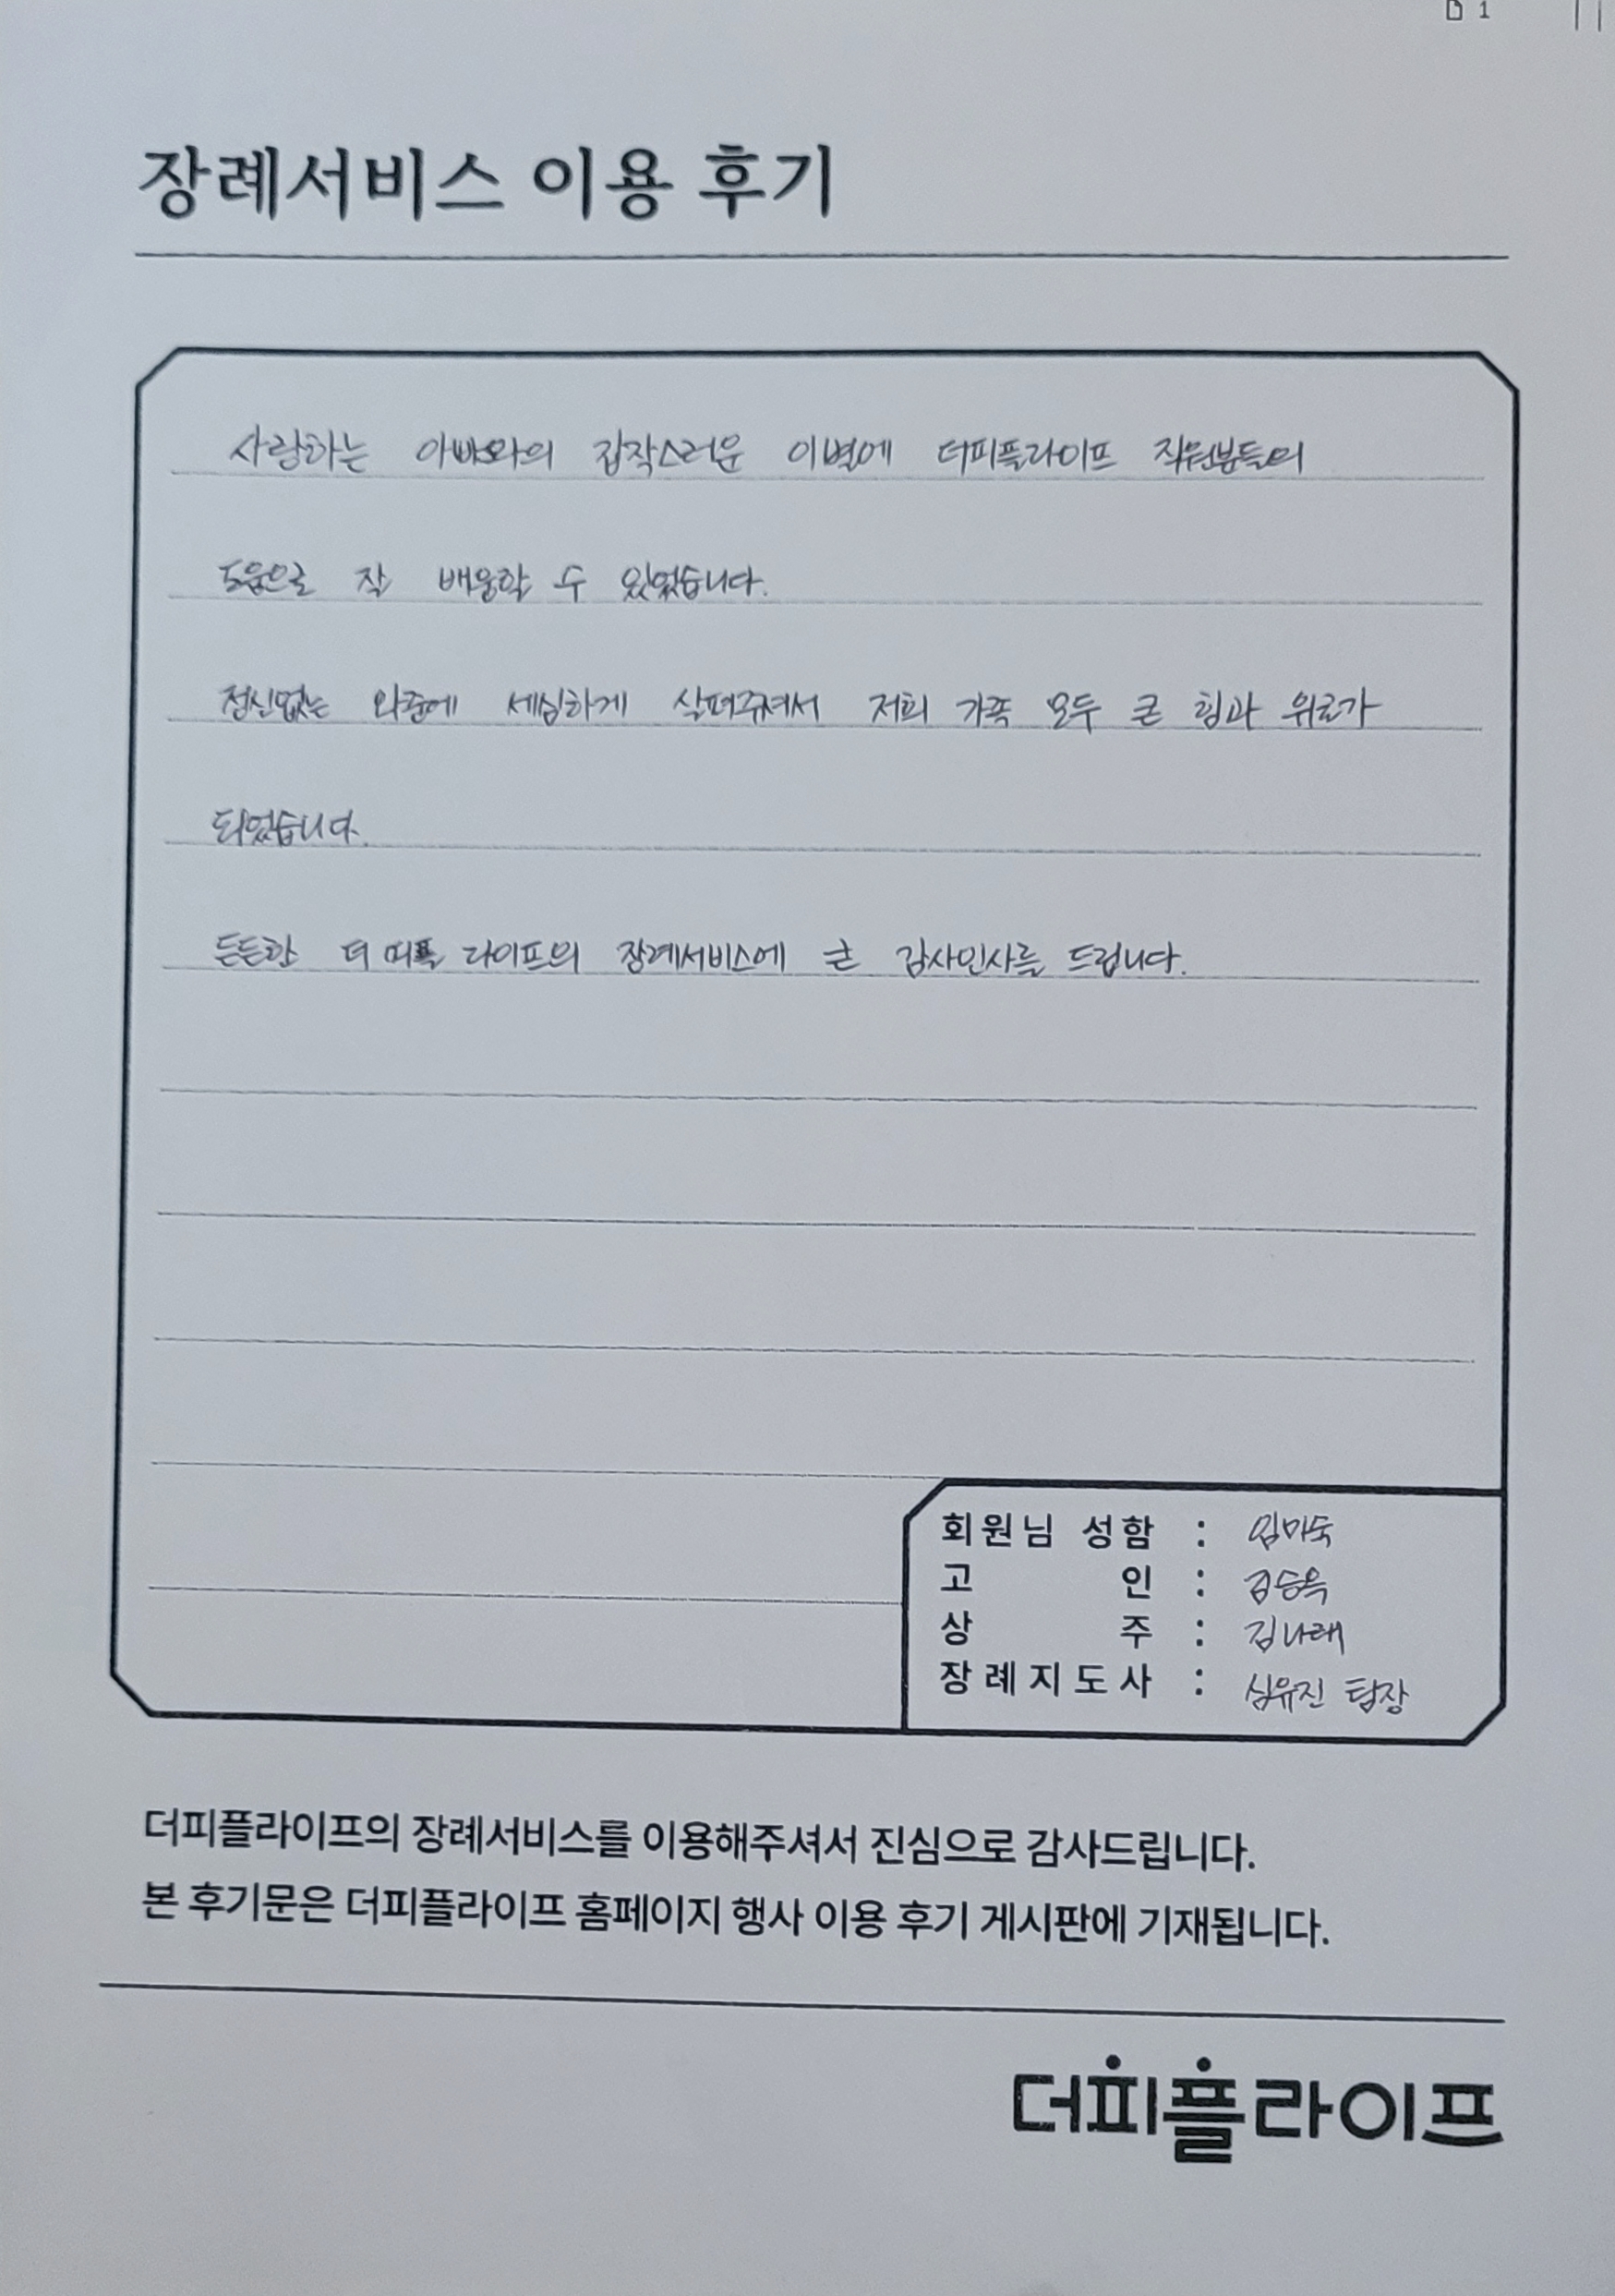 1
장례서비스 이용 후기
사랑하는 아빠와의 갑작스러운 이별에 더피플라이프 직원분들의
도움으로 잘 배웅할 수 있었습니다.
정신없는 와중에 세심하게 살펴주셔서 저희 가족 모두 큰 힘과 위로가
되었습니다.
든든한 더 피플 라이프의 장례서비스에 큰 감사인사를 드립니다.
회원님 성함 : 임미숙
고 인 : 김승욱
상 주 : 김나래
장례지도사 : 심유진 팀장
더피플라이프의 장례서비스를 이용해주셔서 진심으로 감사드립니다.
본 후기문은 더피플라이프 홈페이지 행사 이용 후기 게시판에 기재됩니다.
더피플라이프